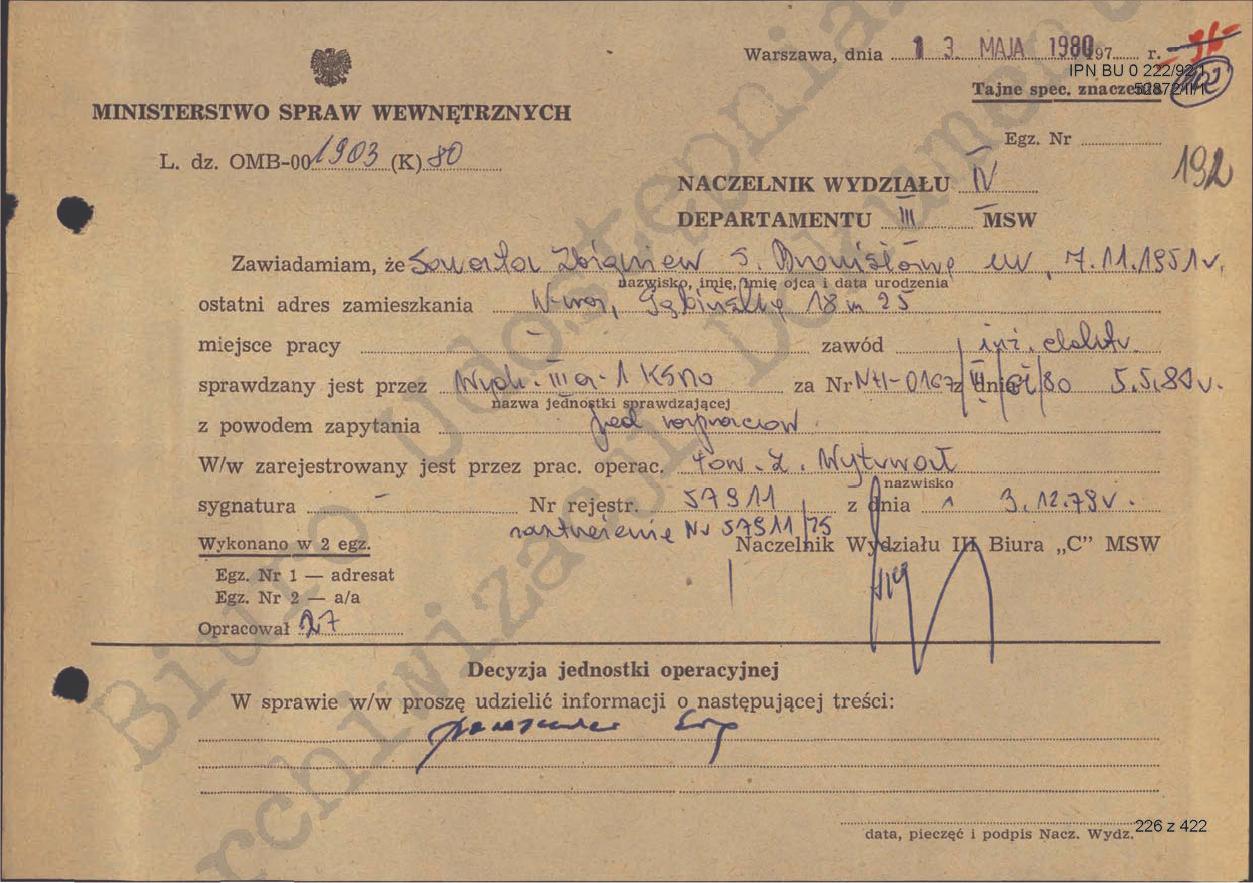 Warszawa, dnia 13. MAJA 1980 197 r.
IPN BU 0 222/92/1
52872/II/1
Tajne spec. znaczenia 102
MINISTERSTWO SPRAW WEWNĘTRZNYCH
Egz. Nr
L. dz. OMB-00 1903 (K) 80
192
NACZELNIK WYDZIAŁU IV
DEPARTAMENTU III MSW
Zawiadamiam, że Zbigniew s. Bronisława ur. 7.11.1951 r.
nazwisko, imię, imię ojca i data urodzenia
ostatni adres zamieszkania W-wa, 18 m 25
miejsce pracy - zawód inż.
sprawdzany jest przez Wydz. III za Nr dnia 5.5.80 r.
nazwa jednostki sprawdzającej
z powodem zapytania
W/w zarejestrowany jest przez prac. operac. tow. Z.
nazwisko
sygnatura - Nr rejestr. 57911 z dnia 3.12.79 r.
zastrzeżenie Nr 57911/75
Wykonano w 2 egz. Naczelnik Wydziału III Biura „C” MSW
Egz. Nr 1 — adresat
Egz. Nr 2 — a/a
Opracował 27
Decyzja jednostki operacyjnej
W sprawie w/w proszę udzielić informacji o następującej treści:
226 z 422
data, pieczęć i podpis Nacz. Wydz.
Biuro Udostępniania
Archiwizacji Dokumentów